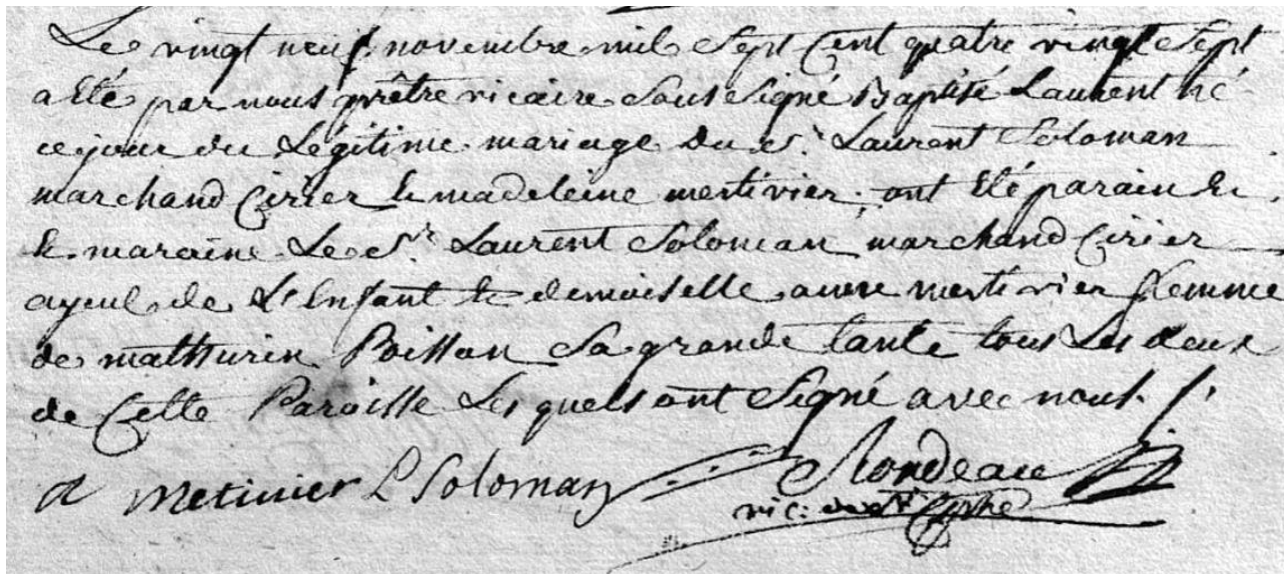 Le vingt neuf novembre mil Sept Cent quatre vingt Sept
a Eté par nous prêtre vicaire Sous Signé Baptisé Laurent né
ce jour du Légitime mariage du Sr. Laurent Soloman
marchand Cirier Et madeleine mertivier, ont Eté parain Et
Et maraine Le Sr. Laurent Soloman marchand Cirier
ayeul de L'Enfant Et demoiselle anne mertivier femme
de mathurin Poisson Sa grande tante tous Les deux
de Cette Paroisse Les quels ont Signé avec nous.
a metivier L Soloman Rondeau
vic: